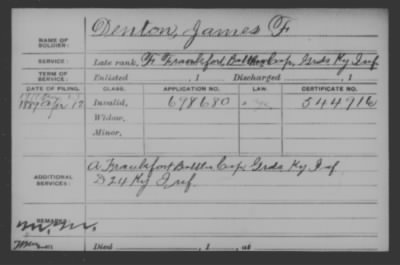 NAME OF SOLDIER: Denton, James F
SERVICE: Late rank, F Frankfort Battln Cap, Grds Ky Inf
TERM OF SERVICE: Enlisted , 1 Discharged , 1
DATE OF FILING. CLASS. APPLICATION NO. LAW. CERTIFICATE NO.
1889 Apr 12 Invalid, 698680 544916
Widow,
Minor,
ADDITIONAL SERVICES: A Frankfort Battln Cap, Grds Ky Inf
D 24 Ky Inf.
REMARKS:
Died , 1 , at